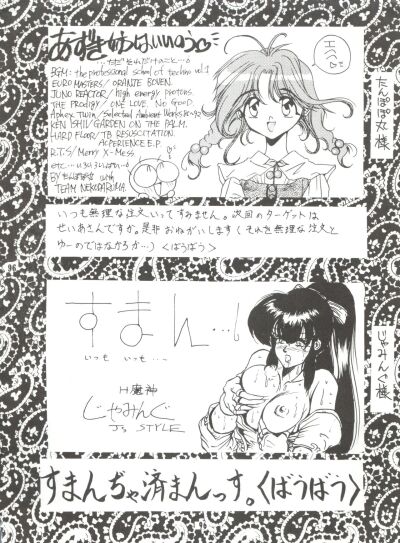 あずきゅうはいいのう
…ただそれだけのこと…。
BGM: the professional school of techno vol.1
EURO MASTERS / ORANJE BOVEN.
JUNO REACTOR / high energy protons.
THE PRODIGY / ONE LOVE. No Good.
Aphex Twin / Selected Ambient Works
KEN ISHII / GARDEN ON THE PALM.
HARD FLOOR / TB RESUSCITATION.
ACPERIENCE E.P.
R.T.S / Merry X-Mess
etc…いろいろいぱーい
BY たんぽぽ丸 with
TEAM NEKODARUMA.
エヘ
たんぽぽ丸様
いつも無理な注文いってすみません。次回のターゲットは
せいあさんですか。是非おねがいします(それを無理な注文と
ゆーのではなかろか…)〈ばうばう〉
すまん…!
いつも いつも…
H魔神
じゃみんぐ
J's STYLE
じゃみんぐ様
すまんぢゃ済まんっす。〈ばうばう〉